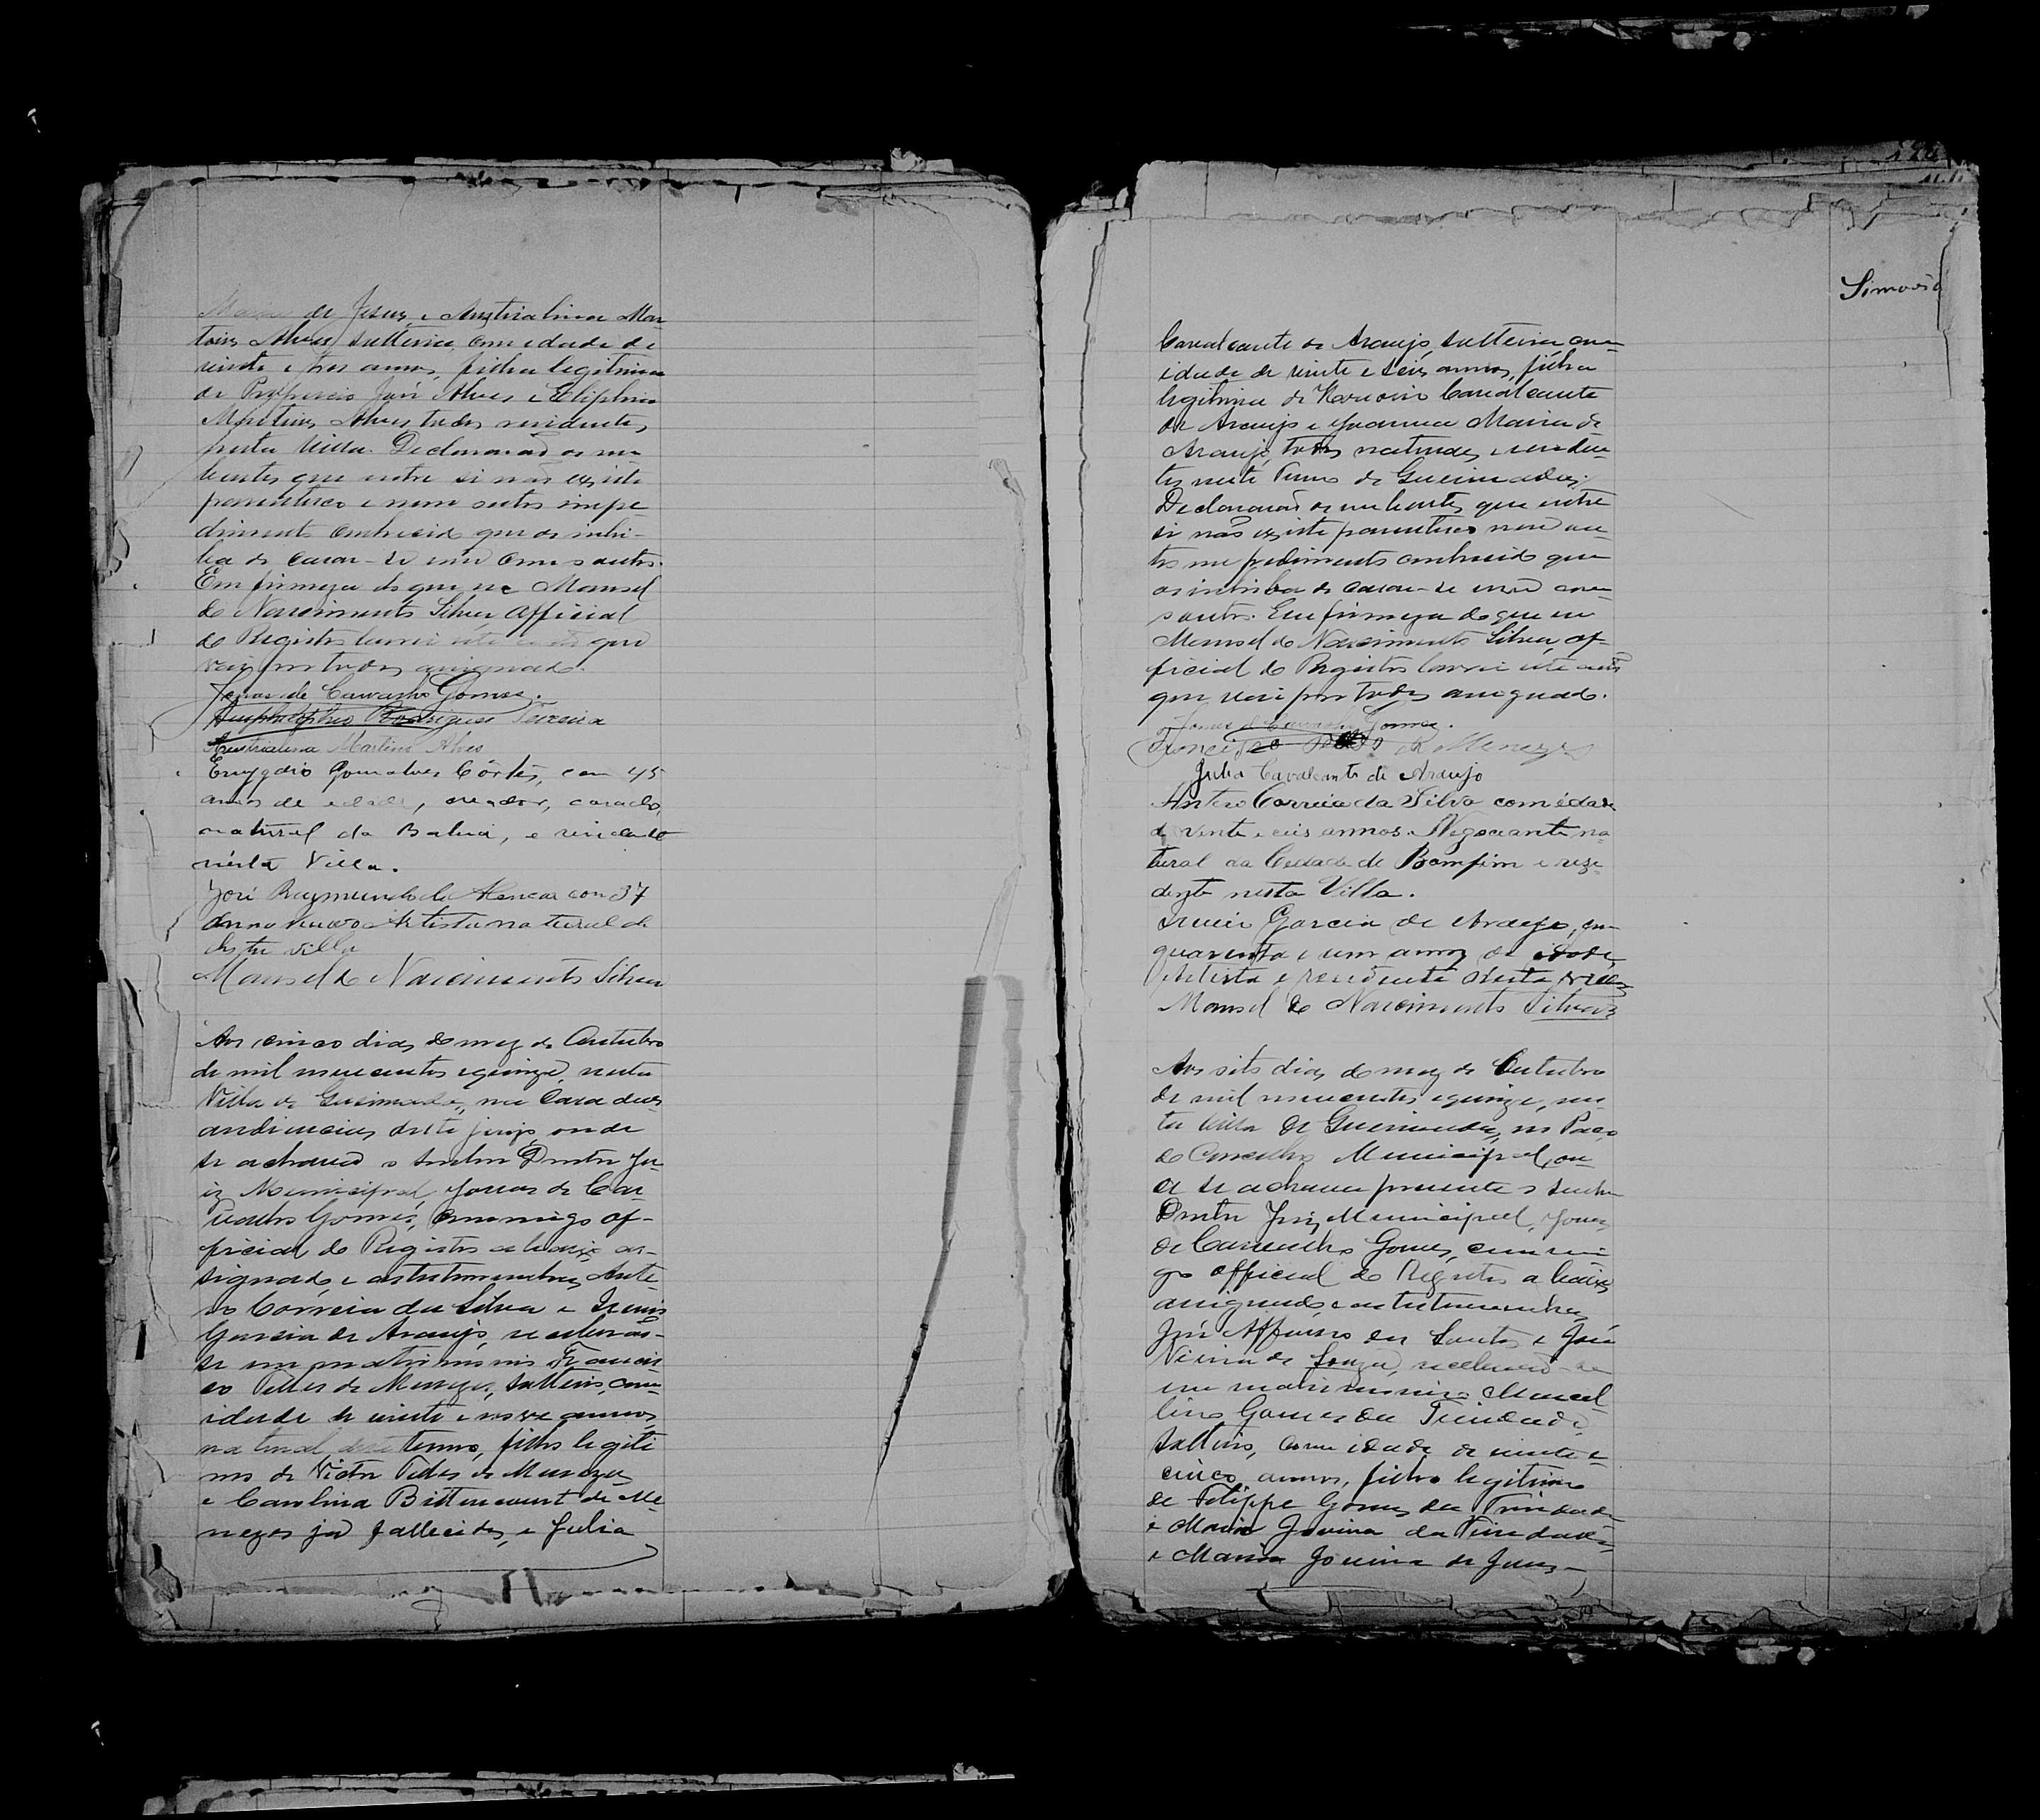 Maria de Jesus, e Austrialina Mar-
tins Alves solteira, com edade de
vinte e tres annos, filha legitima
de José Alves e
Martins Alves, todos residentes
nesta Villa. Declararão os nu
bentes que entre si não existe
parentesco e nem outro impe
dimento conhecido que os inhi-
ba de casar-se um com o outro.
Em firmeza do que eu Manoel
do Nascimento Silva official
do Registro lavrei este que
vai por todos assignado.
Jonas de Carvalho Gomes.
Amphilophio Rodrigues Teixeira
Austrialina Martins Alves
Emygdio Gonsalves Côrtes, com 45
annos de edade, creador, casado,
natural da Bahia, e residente
nésta Villa.
José Raymundo de Alencar con 37
anno Artista natural de
desta villa
Manoel do Nascimento Silva
Aos cinco dias do mez de Outubro
de mil novecentos e quinze, nesta
Villa de Queimadas, na Casa das
audiencias deste juizo, onde
se achava o senhor Doutor Ju
iz Municipal, Jonas de Car-
valho Gomes, commigo of-
ficial do Registro abaixo as-
signado, e as testemunhas, Ante-
ro Correia da Silva e
Garcia de Araujo, receberão-
se em matrimonio Francis
co Telles de Menezes, solteiro, com
idade de vinte e nove annos,
natural deste termo, filho legiti
mo de Victor Telles de Menezes
e Carolina Bittencourt de Me
nezes já fallecidos, e Julia
Simovia
Cavalcante de Araujo, solteira com
idade de vinte e seis annos, filha
legitima de Cavalcante
de Araujo e Joanna Maria de
Araujo, todos naturaes e residen-
tes neste Termo de Queimadas.
Declararão os nubentes que entre
si não existe parentesco nem ou-
tro impedimento conhecido que
os inhiba de casar-se um com
o outro. Em firmeza do que eu
Manoel do Nascimento Silva, of-
ficial do Registro lavrei este
que vai por todos assignado.
Jonas de Carvalho Gomes.
Francisco Telles de Menezes
Julia Cavalcante de Araujo
Antero Correia da Silva com édade
de vinte e ceis annos. Negociante na-
tural da Cedade de Bomfim e reze-
dente nesta Villa.
Garcia de Araujo, com
quarenta e um annos de idade,
Artista e residente nesta villa
Manoel do Nascimento Silva
Aos sete dias do mez de Outubro
de mil novecentos e quinze, nes-
ta Villa de Queimadas, no Paço
do Concelho Municipal, on-
de se achava presente o senhor
Doutor Juiz Municipal, Jonas
de Carvalho Gomes, commi
go official do Registro abaixo
assignado, e as testemunhas
José Affonso dos Santos e José
Vieira de Souza, receberão-se
em matrimonio Marcel
lino Gomes da Trindade,
solteiro, com idade de vinte e
cinco annos, filho legitimo
de Felippe Gomes da Trindade
e Maria Jovina da Trindade,
e Maria Jovina de Jesus-